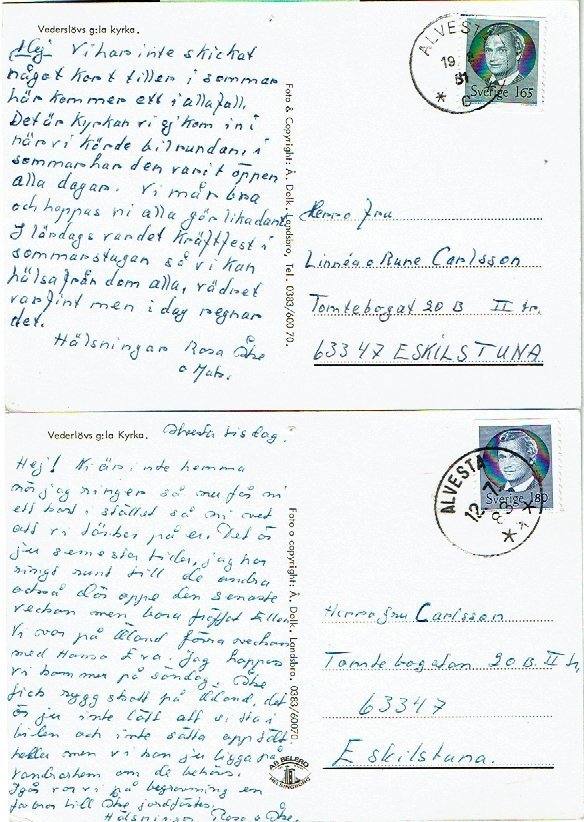 Vederslövs g:la kyrka.
Hej Vi har inte skickat
något kort tiller i sommar
här kommer ett i allafall.
Det är Kyrkan vi ej kom in i
när vi körde bilrundan, i
sommar har den varit öppen
alla dagar. Vi mår bra
och hoppas ni alla gör likadant
I lördags vardet Kräftfest i
sommarstugan så vi kan
hälsa från dom alla, vädret
var fint men i dag regnar
det.
Hälsningar Rosa Åke
o Mats.
Foto & Copyright: Å. Dolk, Landsbro, Tel. 0383/600 70.
ALVESTA
19.
81
* C
Sverige 165
Herr o fru
Linnéa o Rune Carlsson
Tomtebogat 20 B II tr.
63347 ESKILSTUNA
Vederslövs g:la Kyrka.
Alvesta tisdag.
Hej! Ni är inte hemma
när jag ringer så nu får ni
ett kort i stället så ni vet
att vi tänker på er. Det är
ju semester tider, jag har
ringt runt till de andra
också dom oppe den senaste
veckan men bara träffat Ellen
Vi var på Öland förra veckan
med Hans o Eva. Jag hoppas
vi kommer på söndag. Åke
fick ryggskott på Öland, det
är ju inte lätt att sitta i
bilen och inte sätta opp tält
heller men vi kan ju ligga på
vandrarhem om de behövs.
Igår var vi på begravning en
farbror till Åke jordfästes.
Hälsningar Rosa o Åke.
Foto o copyright: Å. Dolk, Landsbro. 0383/60070
AB BELEFO
HELSINGBORG
ALVESTA
12. 7.
83
Sverige 180
Herr o fru Carlsson
Tomtebogatan 20 B. II tr,
63347
Eskilstuna.